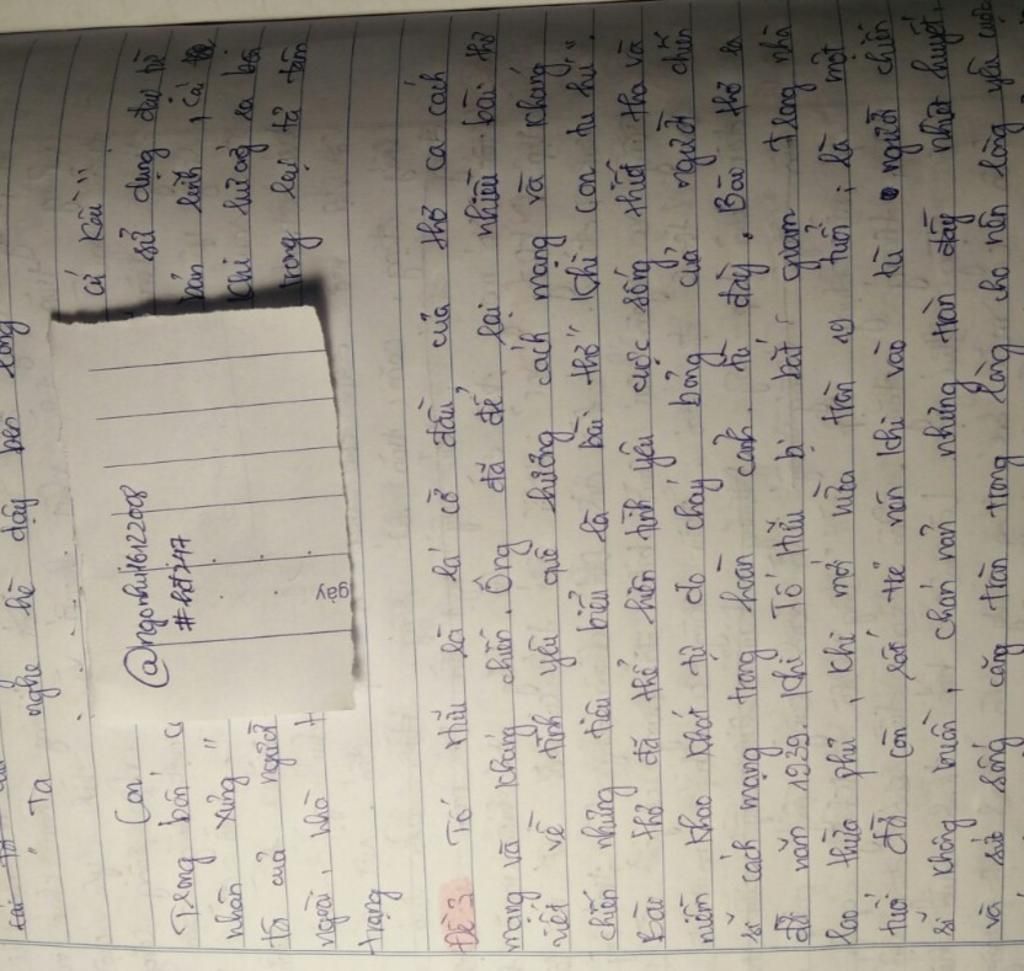 Ta nghe hè dậy bên lòng
cá Kầu"
Con
Trong bốn c
sử dụng đại từ
nhân xưng"
bản lĩnh, cá
tôi của người
Khi hướng ra bên
ngoài, nhà t
trong lại tả tâm
trạng
@ngonhuy16122008
#hst247
gày
Đề 3 Tố Hữu là lá cờ đầu của thơ ca cách
mạng và kháng chiến. Ông đã để lại nhiều bài thơ
viết về tình yêu quê hương cách mạng và kháng
chiến những tiêu biểu là bài thơ" Khi con tu hú".
Bài thơ đã thể hiện tình yêu cuộc sống thiết tha và
niềm khao khát tự do cháy bỏng của người chiến
sĩ cách mạng trong hoàn cảnh tù đày. Bào thơ ra
đời năm 1939. Khi Tố Hữu bị bắt giam trong nhà
lao thừa phủ, khi mới vừa tròn 19 tuổi, là một
tuổi đời còn rất trẻ nên khi vào tù người chiến
sĩ không buồn, chán nản những tràn đầy nhiệt huyết,
và sức sống căng tràn trong lòng cho nên lòng yêu cuộc